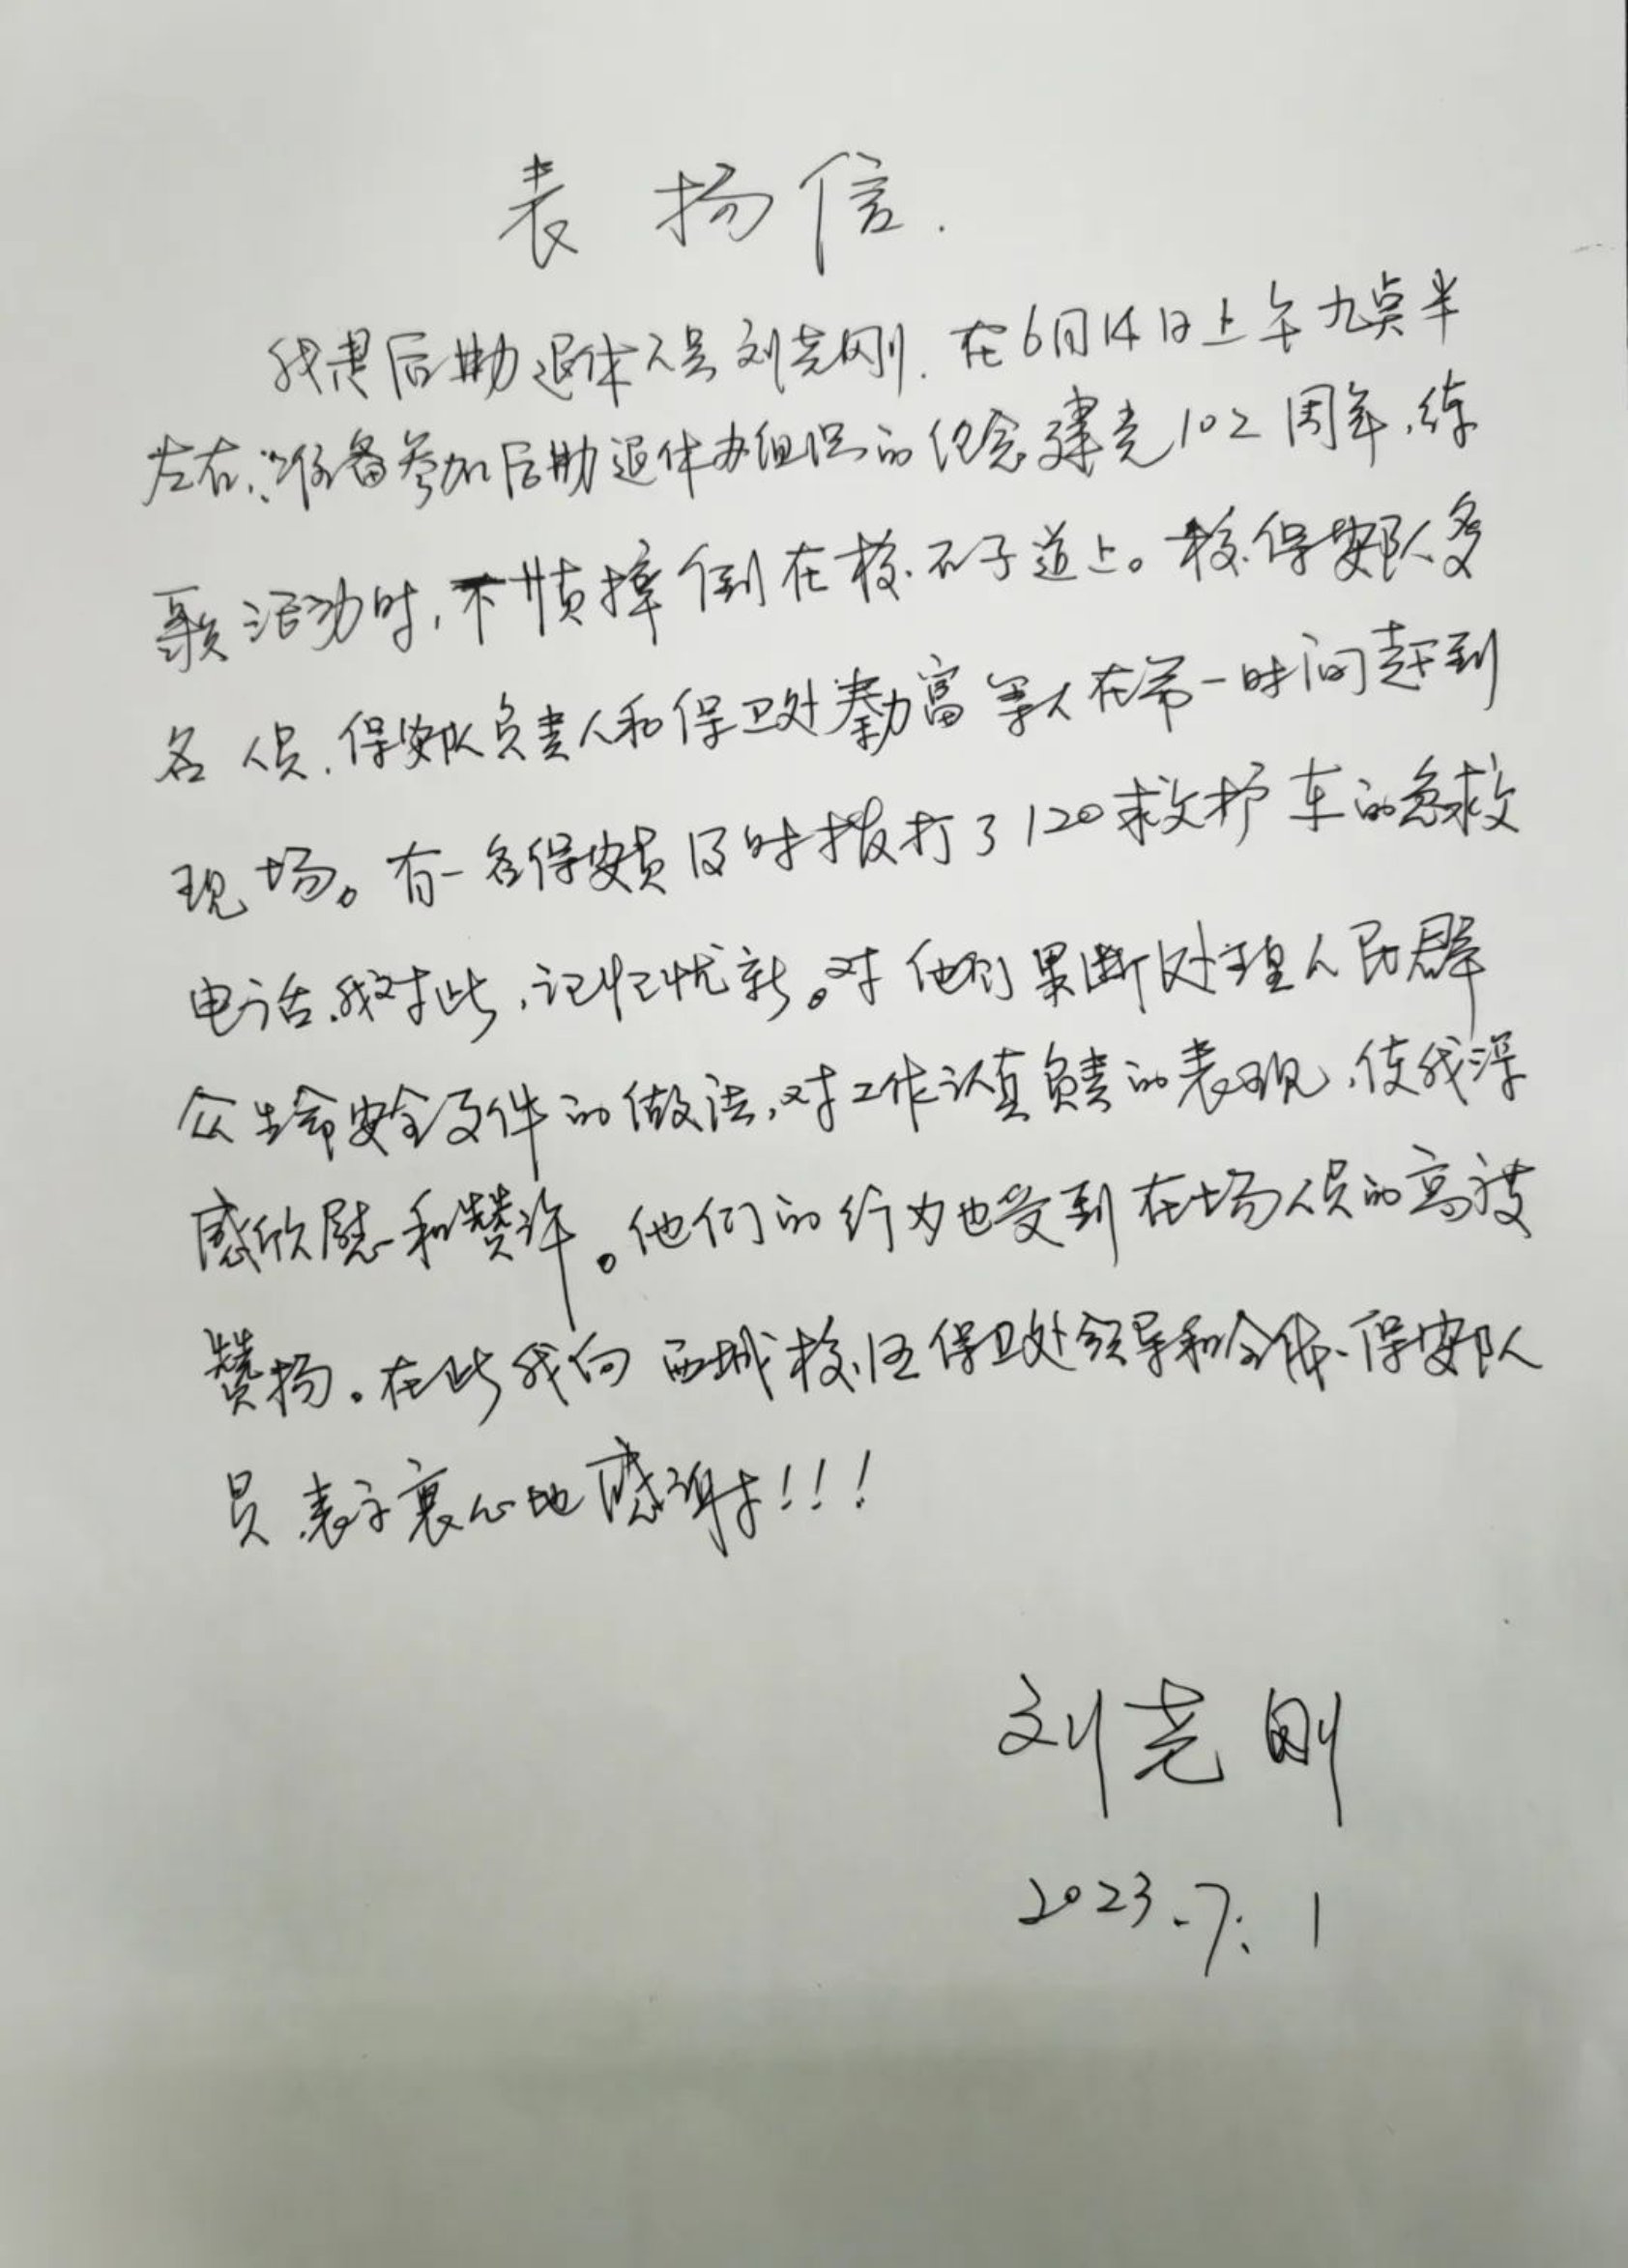 表扬信.
我是后勤退休人员刘尧刚.在6月14日上午九点半
左右,准备参加后勤退休办组织的纪念建党102周年,练
歌活动时,不慎摔倒在校石子道上。校保安队多
名人员.保安队负责人和保卫处勤富等人在第一时间赶到
现场。有一名保安员及时拨打了120救护车的急救
电话.我对此,记忆忧新。对他们果断处理人民群
众生命安全文件的做法,对工作认真负责的表现,使我深
感欣慰和赞许。他们的行为也受到在场人员的高度
赞扬。在此我向西城校区保卫处领导和全体保安队
员表示衷心地感谢!!!
刘尧刚
2023.7.1